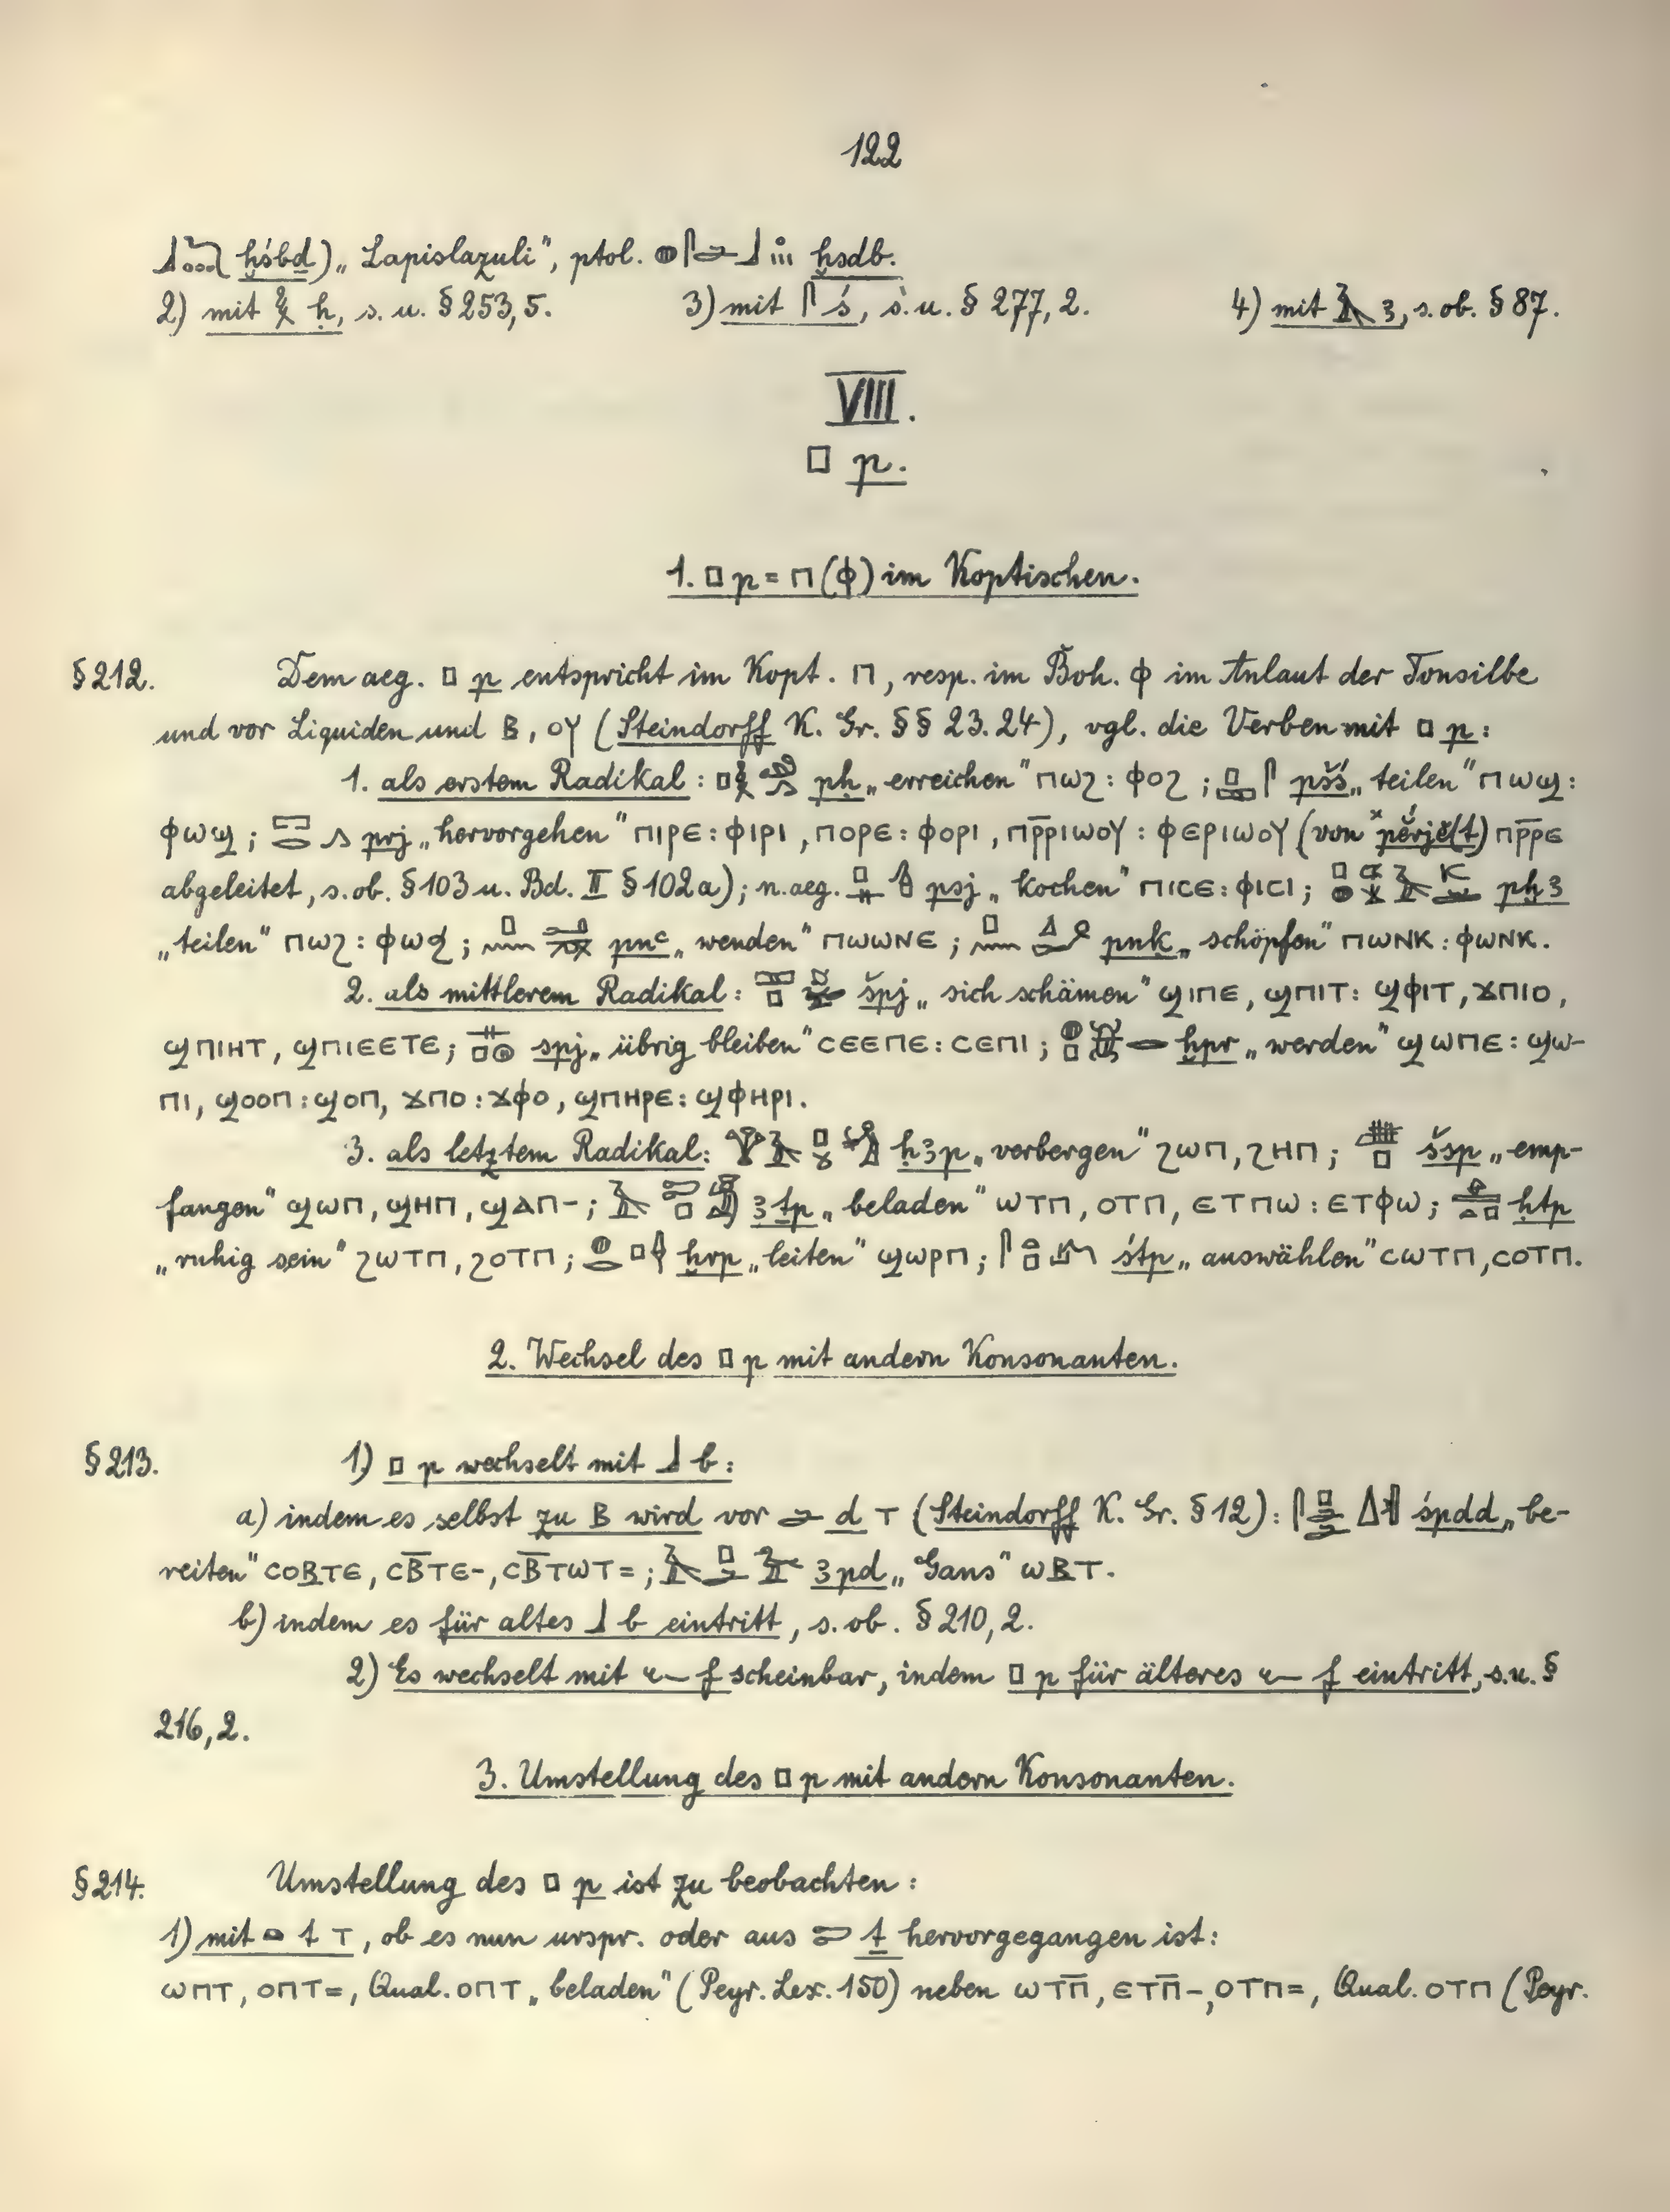 122
𓃀 ḫśbd) „Lapislazuli“, ptol. 𓐍𓋴𓂧𓃀 ḫsdb.
2) mit 𓎛 ḥ, s. u. § 253,5. 3) mit 𓋴 ś, s. u. § 277, 2. 4) mit 𓄿 ꜣ, s. ob. § 87.
VIII.
𓊪 p.
1. 𓊪 p = ⲡ (ⲫ) im Koptischen.
§ 212. Dem aeg. 𓊪 p entspricht im Kopt. ⲡ, resp. im Boh. ⲫ im Anlaut der Tonsilbe
und vor Liquiden und ⲃ, ⲟⲩ (Steindorff K. Gr. §§ 23. 24), vgl. die Verben mit 𓊪 p:
1. als erstem Radikal: 𓊪𓎛 pḥ „erreichen“ ⲡⲱϩ : ⲫⲟϩ ; 𓊪𓈙𓋴 pšś „teilen“ ⲡⲱϣ :
ⲫⲱϣ ; 𓉐𓂋𓂻 prj „hervorgehen“ ⲡⲓⲣⲉ : ⲫⲓⲣⲓ , ⲡⲟⲣⲉ : ⲫⲟⲣⲓ , ⲡⲣ̅ⲣⲓⲱⲟⲩ : ⲫⲉⲣⲓⲱⲟⲩ (von *pĕrjĕ(t) ⲡⲣ̅ⲣⲉ
abgeleitet, s. ob. § 103 u. Bd. II § 102a) ; n. aeg. 𓊪𓊃𓊮 psj „kochen“ ⲡⲓⲥⲉ : ⲫⲓⲥⲓ ; 𓊪𓐍 pḫꜣ
„teilen“ ⲡⲱϩ : ⲫⲱϧ ; 𓊪𓈖 pnꜥ „wenden“ ⲡⲱⲱⲛⲉ ; 𓊪𓈖 pnḳ „schöpfen“ ⲡⲱⲛⲕ : ⲫⲱⲛⲕ.
2. als mittlerem Radikal: 𓈙𓊪 špj „sich schämen“ ϣⲓⲡⲉ, ϣⲡⲓⲧ : ϣⲫⲓⲧ , ϫⲡⲓⲟ,
ϣⲡⲓⲏⲧ, ϣⲡⲓⲉⲉⲧⲉ ; 𓊃𓊪𓊗 spj „übrig bleiben“ ⲥⲉⲉⲡⲉ : ⲥⲉⲡⲓ ; 𓐍𓊪𓆣𓂋 ḫpr „werden“ ϣⲱⲡⲉ : ϣⲱ-
ⲡⲓ, ϣⲟⲟⲡ : ϣⲟⲡ, ϫⲡⲟ : ϫⲫⲟ , ϣⲡⲏⲣⲉ : ϣⲫⲏⲣⲓ.
3. als letztem Radikal: 𓄿𓊪 ḥꜣp „verbergen“ ϩⲱⲡ, ϩⲏⲡ ; 𓊪 šsp „emp-
fangen“ ϣⲱⲡ, ϣⲏⲡ, ϣⲁⲡ- ; 𓄿𓍿𓊪 ꜣṯp „beladen“ ⲱⲧⲡ, ⲟⲧⲡ, ⲉⲧⲡⲱ : ⲉⲧⲫⲱ ; 𓊵𓏏𓊪 ḥtp
„ruhig sein“ ϩⲱⲧⲡ, ϩⲟⲧⲡ ; 𓐍𓂋𓊪 ḫrp „leiten“ ϣⲱⲣⲡ ; 𓋴𓏏𓊪 śtp „auswählen“ ⲥⲱⲧⲡ, ⲥⲟⲧⲡ.
2. Wechsel des 𓊪 p mit andern Konsonanten.
§ 213. 1) 𓊪 p wechselt mit 𓃀 b:
a) indem es selbst zu ⲃ wird vor 𓂧 d ⲧ (Steindorff K. Gr. § 12) : 𓋴𓊪𓂧𓂧 śpdd „be-
reiten“ ⲥⲟⲃⲧⲉ, ⲥⲃ̅ⲧⲉ-, ⲥⲃ̅ⲧⲱⲧ= ; 𓄿𓊪𓂧 ꜣpd „Gans“ ⲱⲃⲧ.
b) indem es für altes 𓃀 b eintritt, s. ob. § 210, 2.
2) Es wechselt mit 𓆑 f scheinbar, indem 𓊪 p für älteres 𓆑 f eintritt, s. u. §
216, 2.
3. Umstellung des 𓊪 p mit andern Konsonanten.
§ 214. Umstellung des 𓊪 p ist zu beobachten :
1) mit 𓏏 t ⲧ, ob es nun urspr. oder aus 𓍿 ṯ hervorgegangen ist :
ⲱⲡⲧ, ⲟⲡⲧ=, Qual. ⲟⲡⲧ „beladen“ (Peyr. Lex. 150) neben ⲱⲧⲡ̅, ⲉⲧⲡ̅-, ⲟⲧⲡ=, Qual. ⲟⲧⲡ (Peyr.